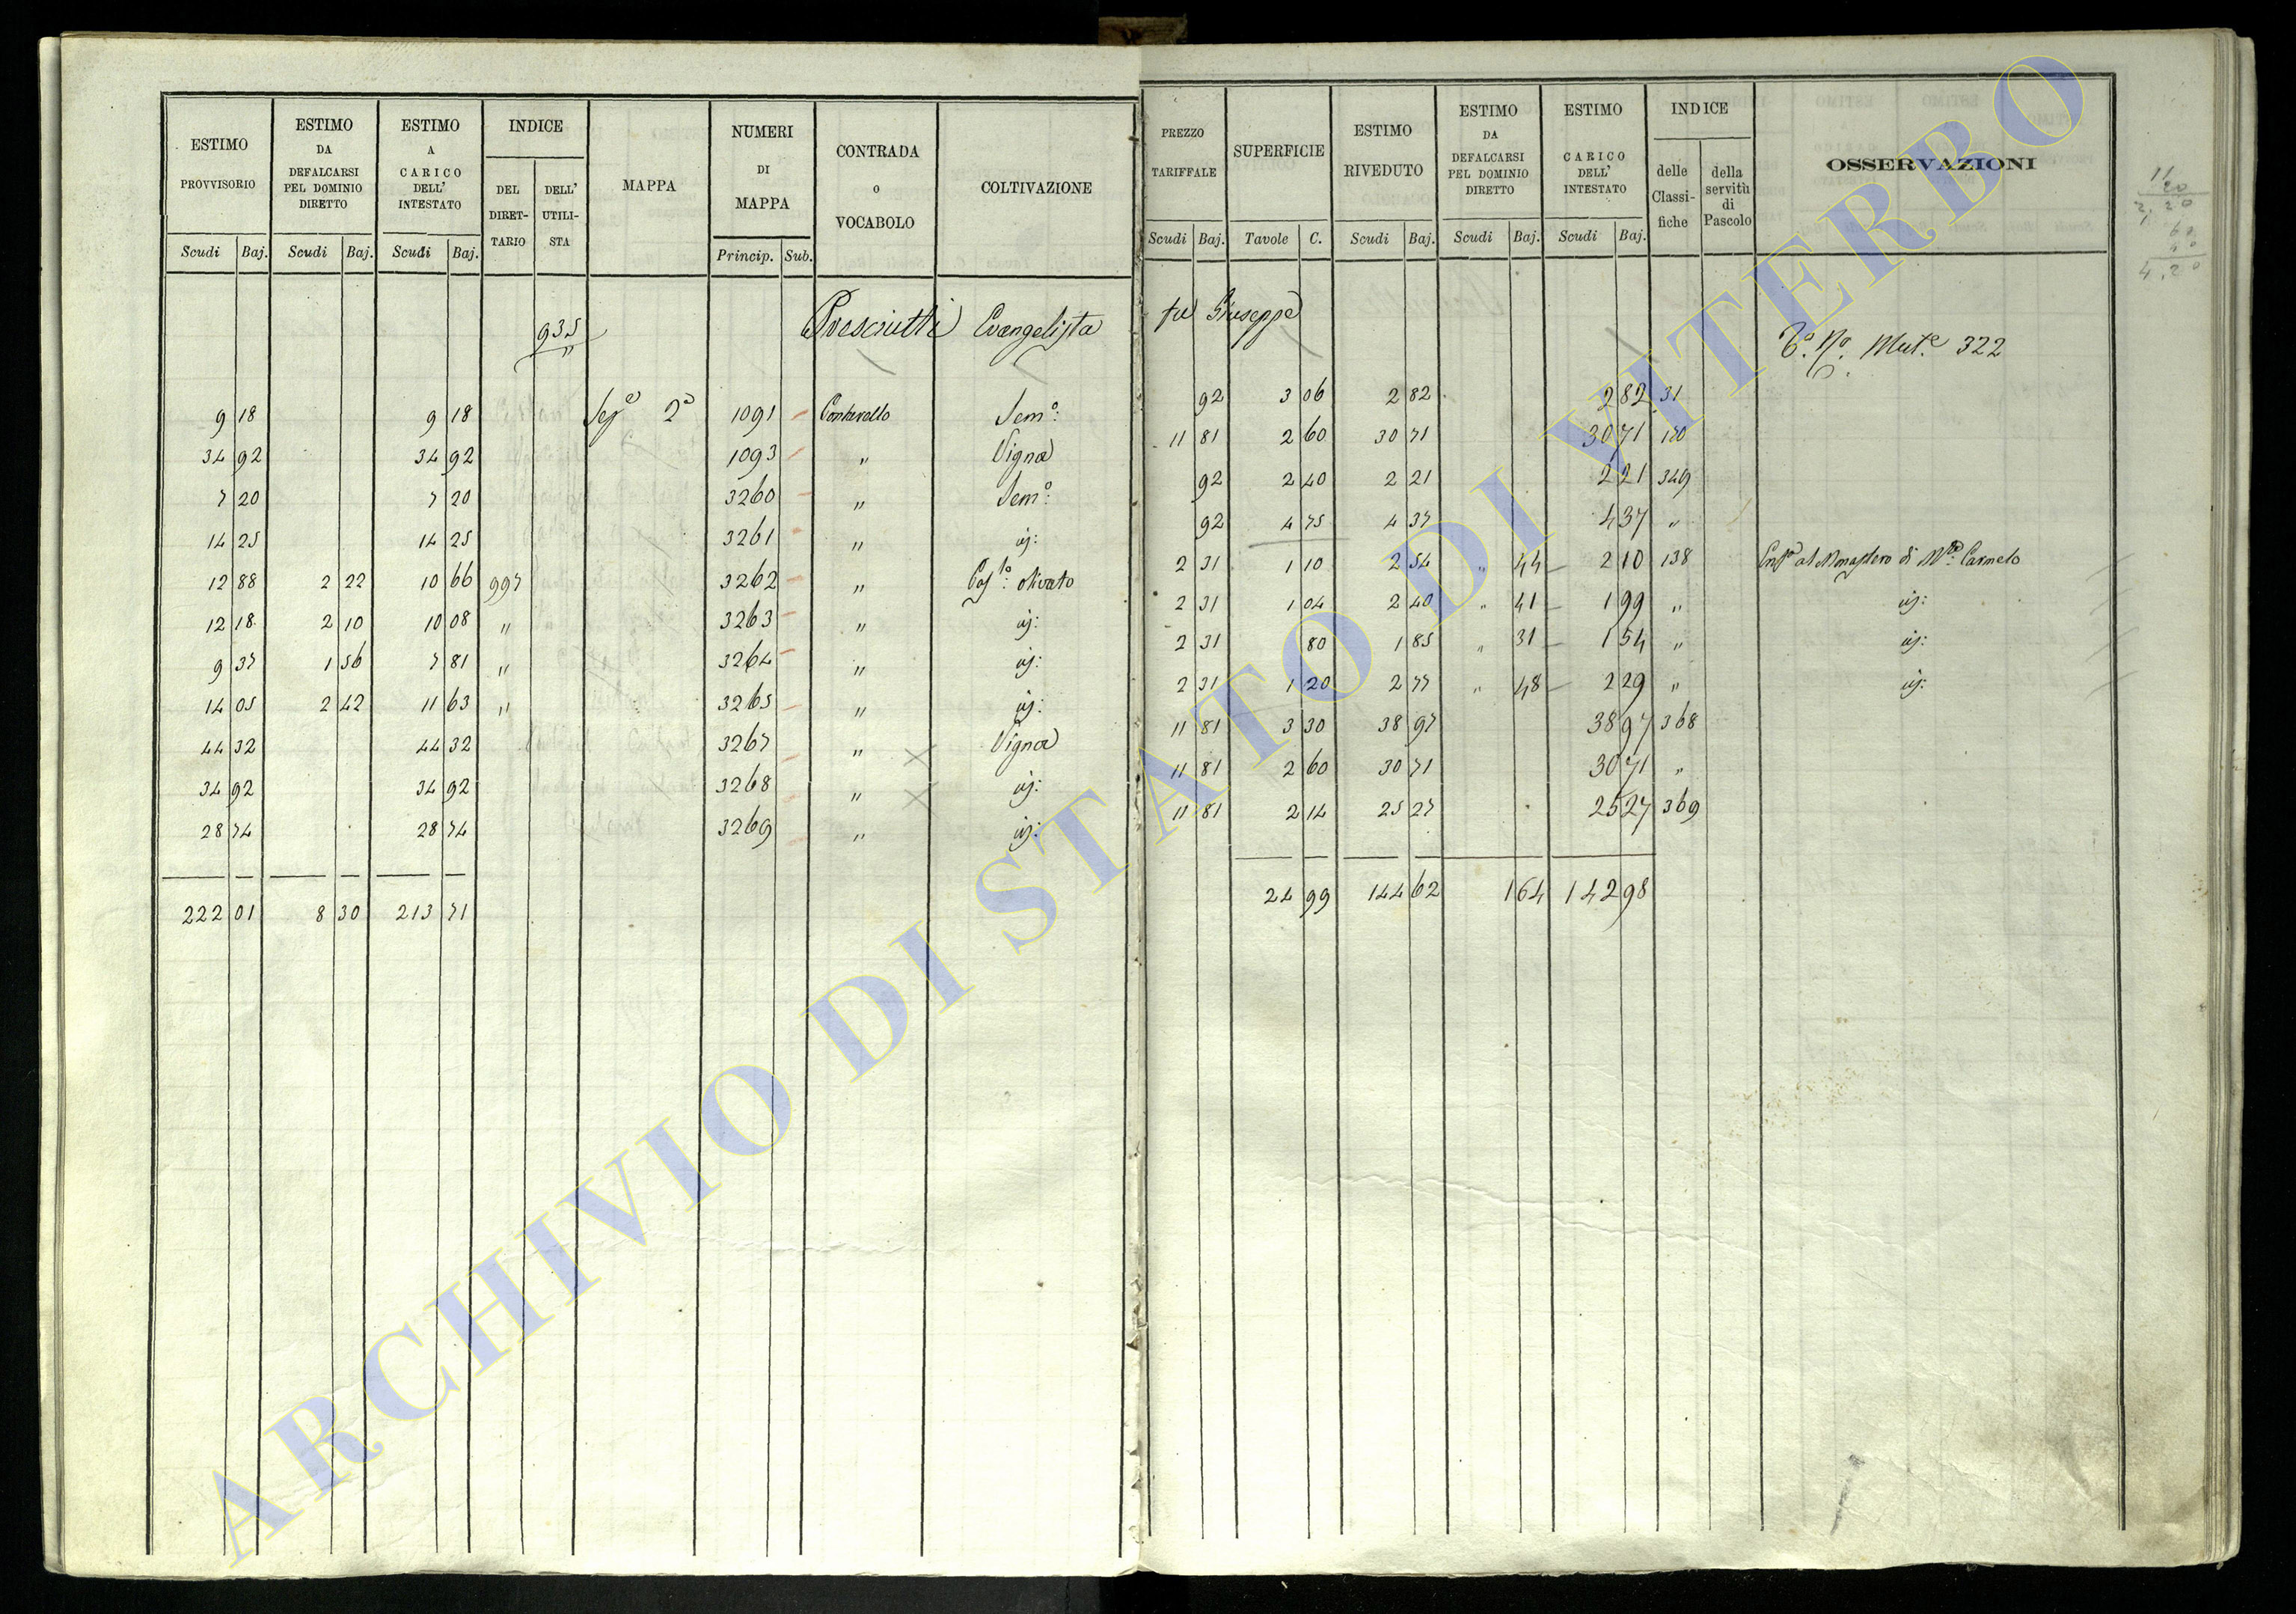 ESTIMO PROVVISORIO | ESTIMO DA DEFALCARSI PEL DOMINIO DIRETTO | ESTIMO A CARICO DELL' INTESTATO | INDICE | MAPPA | NUMERI DI MAPPA | CONTRADA O VOCABOLO | COLTIVAZIONE | PREZZO TARIFFALE | SUPERFICIE | ESTIMO RIVEDUTO | ESTIMO DA DEFALCARSI PEL DOMINIO DIRETTO | ESTIMO CARICO DELL' INTESTATO | INDICE | OSSERVAZIONI
DEL DIRETTARIO | DELL' UTILISTA | delle Classifiche | della servitù di Pascolo
Scudi | Baj. | Scudi | Baj. | Scudi | Baj. | Princip. | Sub. | Scudi | Baj. | Tavole | C. | Scudi | Baj. | Scudi | Baj. | Scudi | Baj.
935 " Presciutti Evangelista fu Giuseppe
Mut.e 322
9 18 | 9 18 | Sez.e 2a | 1091 | Sem.o: | 92 | 3 06 | 2 82 | 2 82 | 31
34 92 | 34 92 | 1093 | " | Vigna | 11 81 | 2 60 | 30 71 | 30 71
7 20 | 7 20 | 3260 | " | Sem.o: | 92 | 2 40 | 2 21 | 2 21 | 349
14 25 | 14 25 | 3261 | " | id: | 92 | 4 75 | 4 37 | 4 37 | "
12 88 | 2 22 | 10 66 | 997 | 3262 | " | olivato | 2 31 | 1 10 | 2 54 | " 44 | 2 10 | 138 | al Monastero di Carmelo
12 18 | 2 10 | 10 08 | " | 3263 | " | id: | 2 31 | 1 04 | 2 40 | " 41 | 1 99 | " | id:
9 37 | 1 56 | 7 81 | " | 3264 | " | id: | 2 31 | 80 | 1 85 | " 31 | 1 54 | " | id:
14 05 | 2 42 | 11 63 | " | 3265 | " | id: | 2 31 | 1 20 | 2 77 | " 48 | 2 29 | " | id:
44 32 | 44 32 | 3267 | " | Vigna | 11 81 | 3 30 | 38 97 | 38 97 | 368
34 92 | 34 92 | 3268 | " | id: | 11 81 | 2 60 | 30 71 | 30 71 | "
28 74 | 28 74 | 3269 | " | id: | 11 81 | 2 14 | 25 27 | 25 27 | 369
222 01 | 8 30 | 213 71 | 24 99 | 144 62 | 1 64 | 142 98
4.20
ARCHIVIO DI STATO DI VITERBO